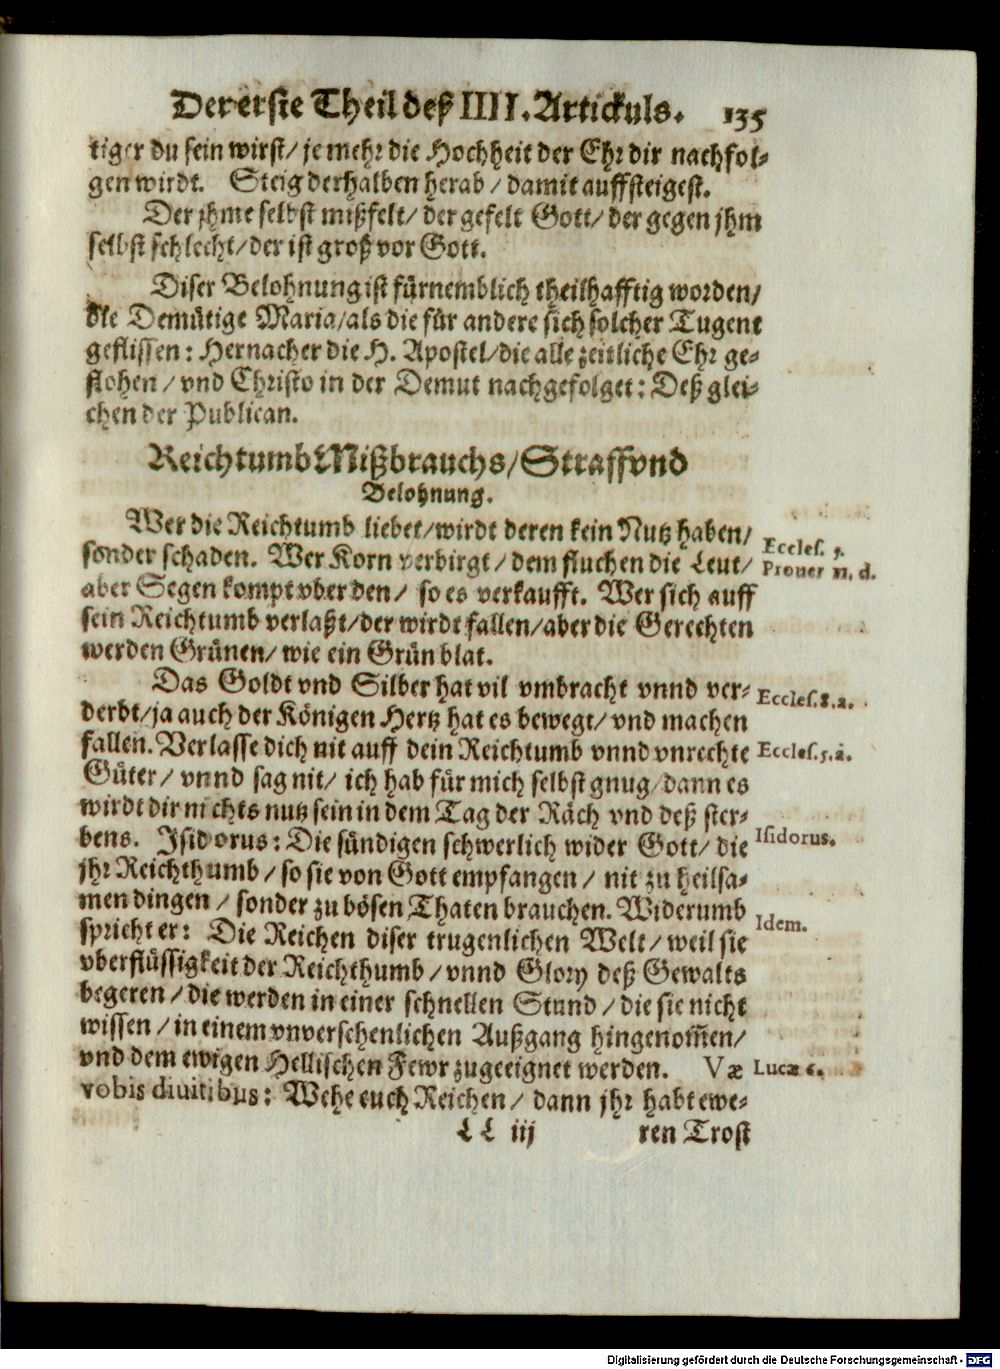 Der erste Theil deß IIII. Artickuls. 135
tiger du sein wirst / je mehr die Hochheit der Ehr dir nachfol-
gen wirdt. Steig derhalben herab / damit auffsteigest.
Der jhme selbst mißfelt / der gefelt Gott / der gegen jhm
selbst schlecht / der ist groß vor Gott.
Diser Belohnung ist fürnemblich theilhafftig worden /
die Demütige Maria / als die für andere sich solcher Tugent
geflissen: Hernacher die H. Apostel / die alle zeitliche Ehr ge-
flohen / vnd Christo in der Demut nachgefolget: Deß glei-
chen der Publican.
Reichtumb Mißbrauchs / Straff vnd
Belohnung.
Wer die Reichtumb liebet / wirdt deren kein Nutz haben /
sonder schaden. Wer Korn verbirgt / dem fluchen die Leut /
Eccles. 5.
Prouer 11. d.
aber Segen kompt vber den / so es verkaufft. Wer sich auff
sein Reichtumb verlaßt / der wirdt fallen / aber die Gerechten
werden Grünen / wie ein Grün blat.
Das Goldt vnd Silber hat vil vmbracht vnnd ver-
Eccles. 8. a.
derbt / ja auch der Königen Hertz hat es bewegt / vnd machen
fallen. Verlasse dich nit auff dein Reichtumb vnnd vnrechte
Eccles. 5. a.
Güter / vnnd sag nit / ich hab für mich selbst gnug / dann es
wirdt dir nichts nutz sein in dem Tag der Räch vnd deß ster-
bens. Isidorus: Die sündigen schwerlich wider Gott / die
Isidorus.
jhr Reichthumb / so sie von Gott empfangen / nit zu heilsa-
men dingen / sonder zu bösen Thaten brauchen. Widerumb
Idem.
spricht er: Die Reichen diser trugenlichen Welt / weil sie
vberflüssigkeit der Reichthumb / vnnd Glory deß Gewalts
begeren / die werden in einer schnellen Stund / die sie nicht
wissen / in einem vnversehenlichen Außgang hingenom̃en /
vnd dem ewigen Hellischen Fewr zugeeignet werden. Væ
Lucæ 6.
vobis diuitibus: Wehe euch Reichen / dann jhr habt ewe-
LL iij
ren Trost
Digitalisierung gefördert durch die Deutsche Forschungsgemeinschaft - DFG